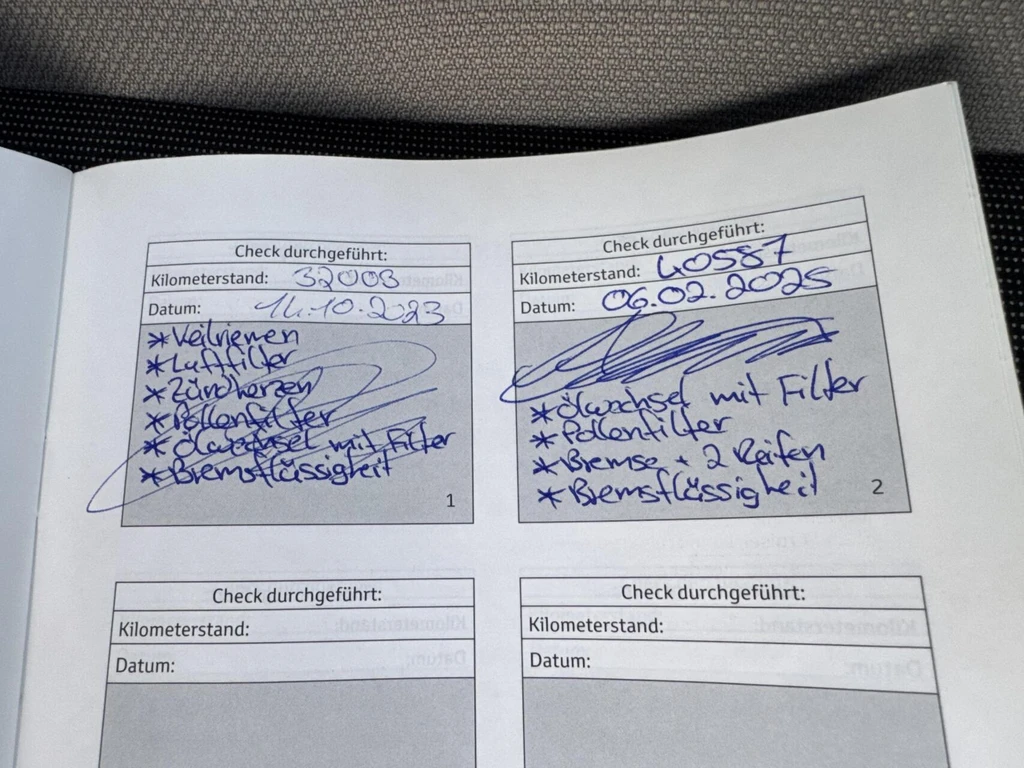 Check durchgeführt:
Kilometerstand: 32008
Datum: 14.10.2023
*Keilriemen
*Luftfilter
*Zündkerzen
*Pollenfilter
*Ölwechsel mit Filter
*Bremsflüssigkeit
1
Check durchgeführt:
Kilometerstand: 40587
Datum: 06.02.2025
*Ölwechsel mit Filter
*Pollenfilter
*Bremse + 2 Reifen
*Bremsflüssigkeit
2
Check durchgeführt:
Kilometerstand:
Datum:
Check durchgeführt:
Kilometerstand:
Datum: